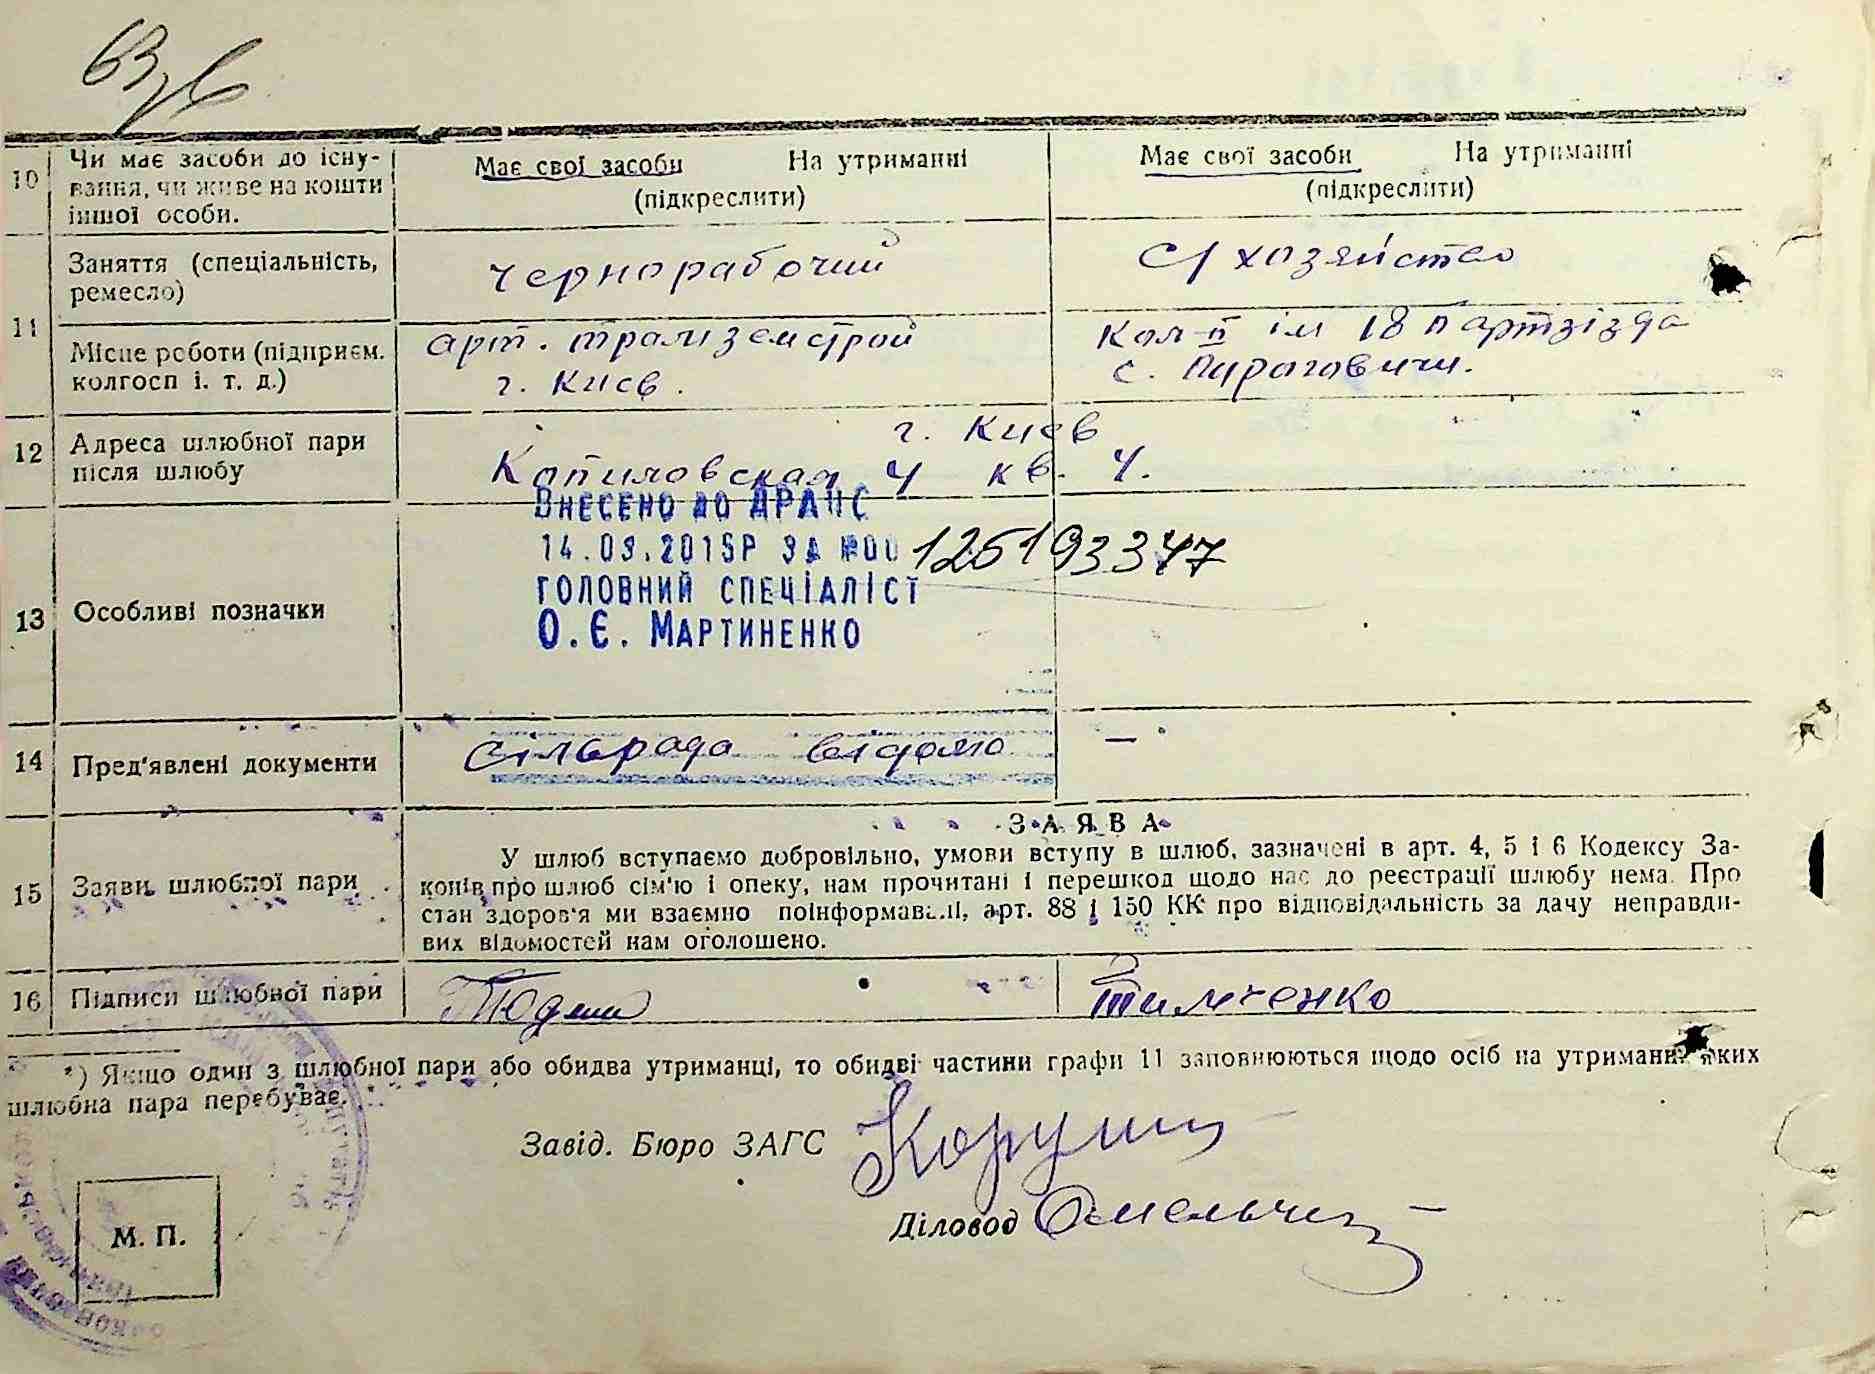 10
Чи має засоби до існу-
вання, чи живе на кошти
іншої особи.
Має свої засоби На утриманні
(підкреслити)
Має свої засоби На утриманні
(підкреслити)
11
Заняття (спеціальність,
ремесло)
чернорабочий
с/хозяйство
Місце роботи (підприєм.
колгосп і. т. д.)
арт. трамземстрой
г. Киев.
Кол-п ім 18 Партзізда
с. Пироговичи.
12
Адреса шлюбної пари
після шлюбу
г. Киев
Копиловская 4 кв. 4.
13
Особливі позначки
Внесено до ДРАЦС
14.03.2015Р ЗА №00125193347
ГОЛОВНИЙ СПЕЦІАЛІСТ
О.Є. МАРТИНЕНКО
14
Пред'явлені документи
Сільрада відомо
—
15
Заяви шлюбної пари
ЗАЯВА
У шлюб вступаємо добровільно, умови вступу в шлюб, зазначені в арт. 4, 5 і 6 Кодексу За-
конів про шлюб сім'ю і опеку, нам прочитані і перешкод щодо нас до реєстрації шлюбу нема. Про
стан здоров'я ми взаємно поінформавалі, арт. 88 і 150 КК про відповідальність за дачу неправди-
вих відомостей нам оголошено.
16
Підписи шлюбної пари
Тимченко
*) Якщо один з шлюбної пари або обидва утриманці, то обидві частини графи 11 заповнюються щодо осіб на утриманні яких
шлюбна пара перебуває.
Завід. Бюро ЗАГС
Діловод
М. П.